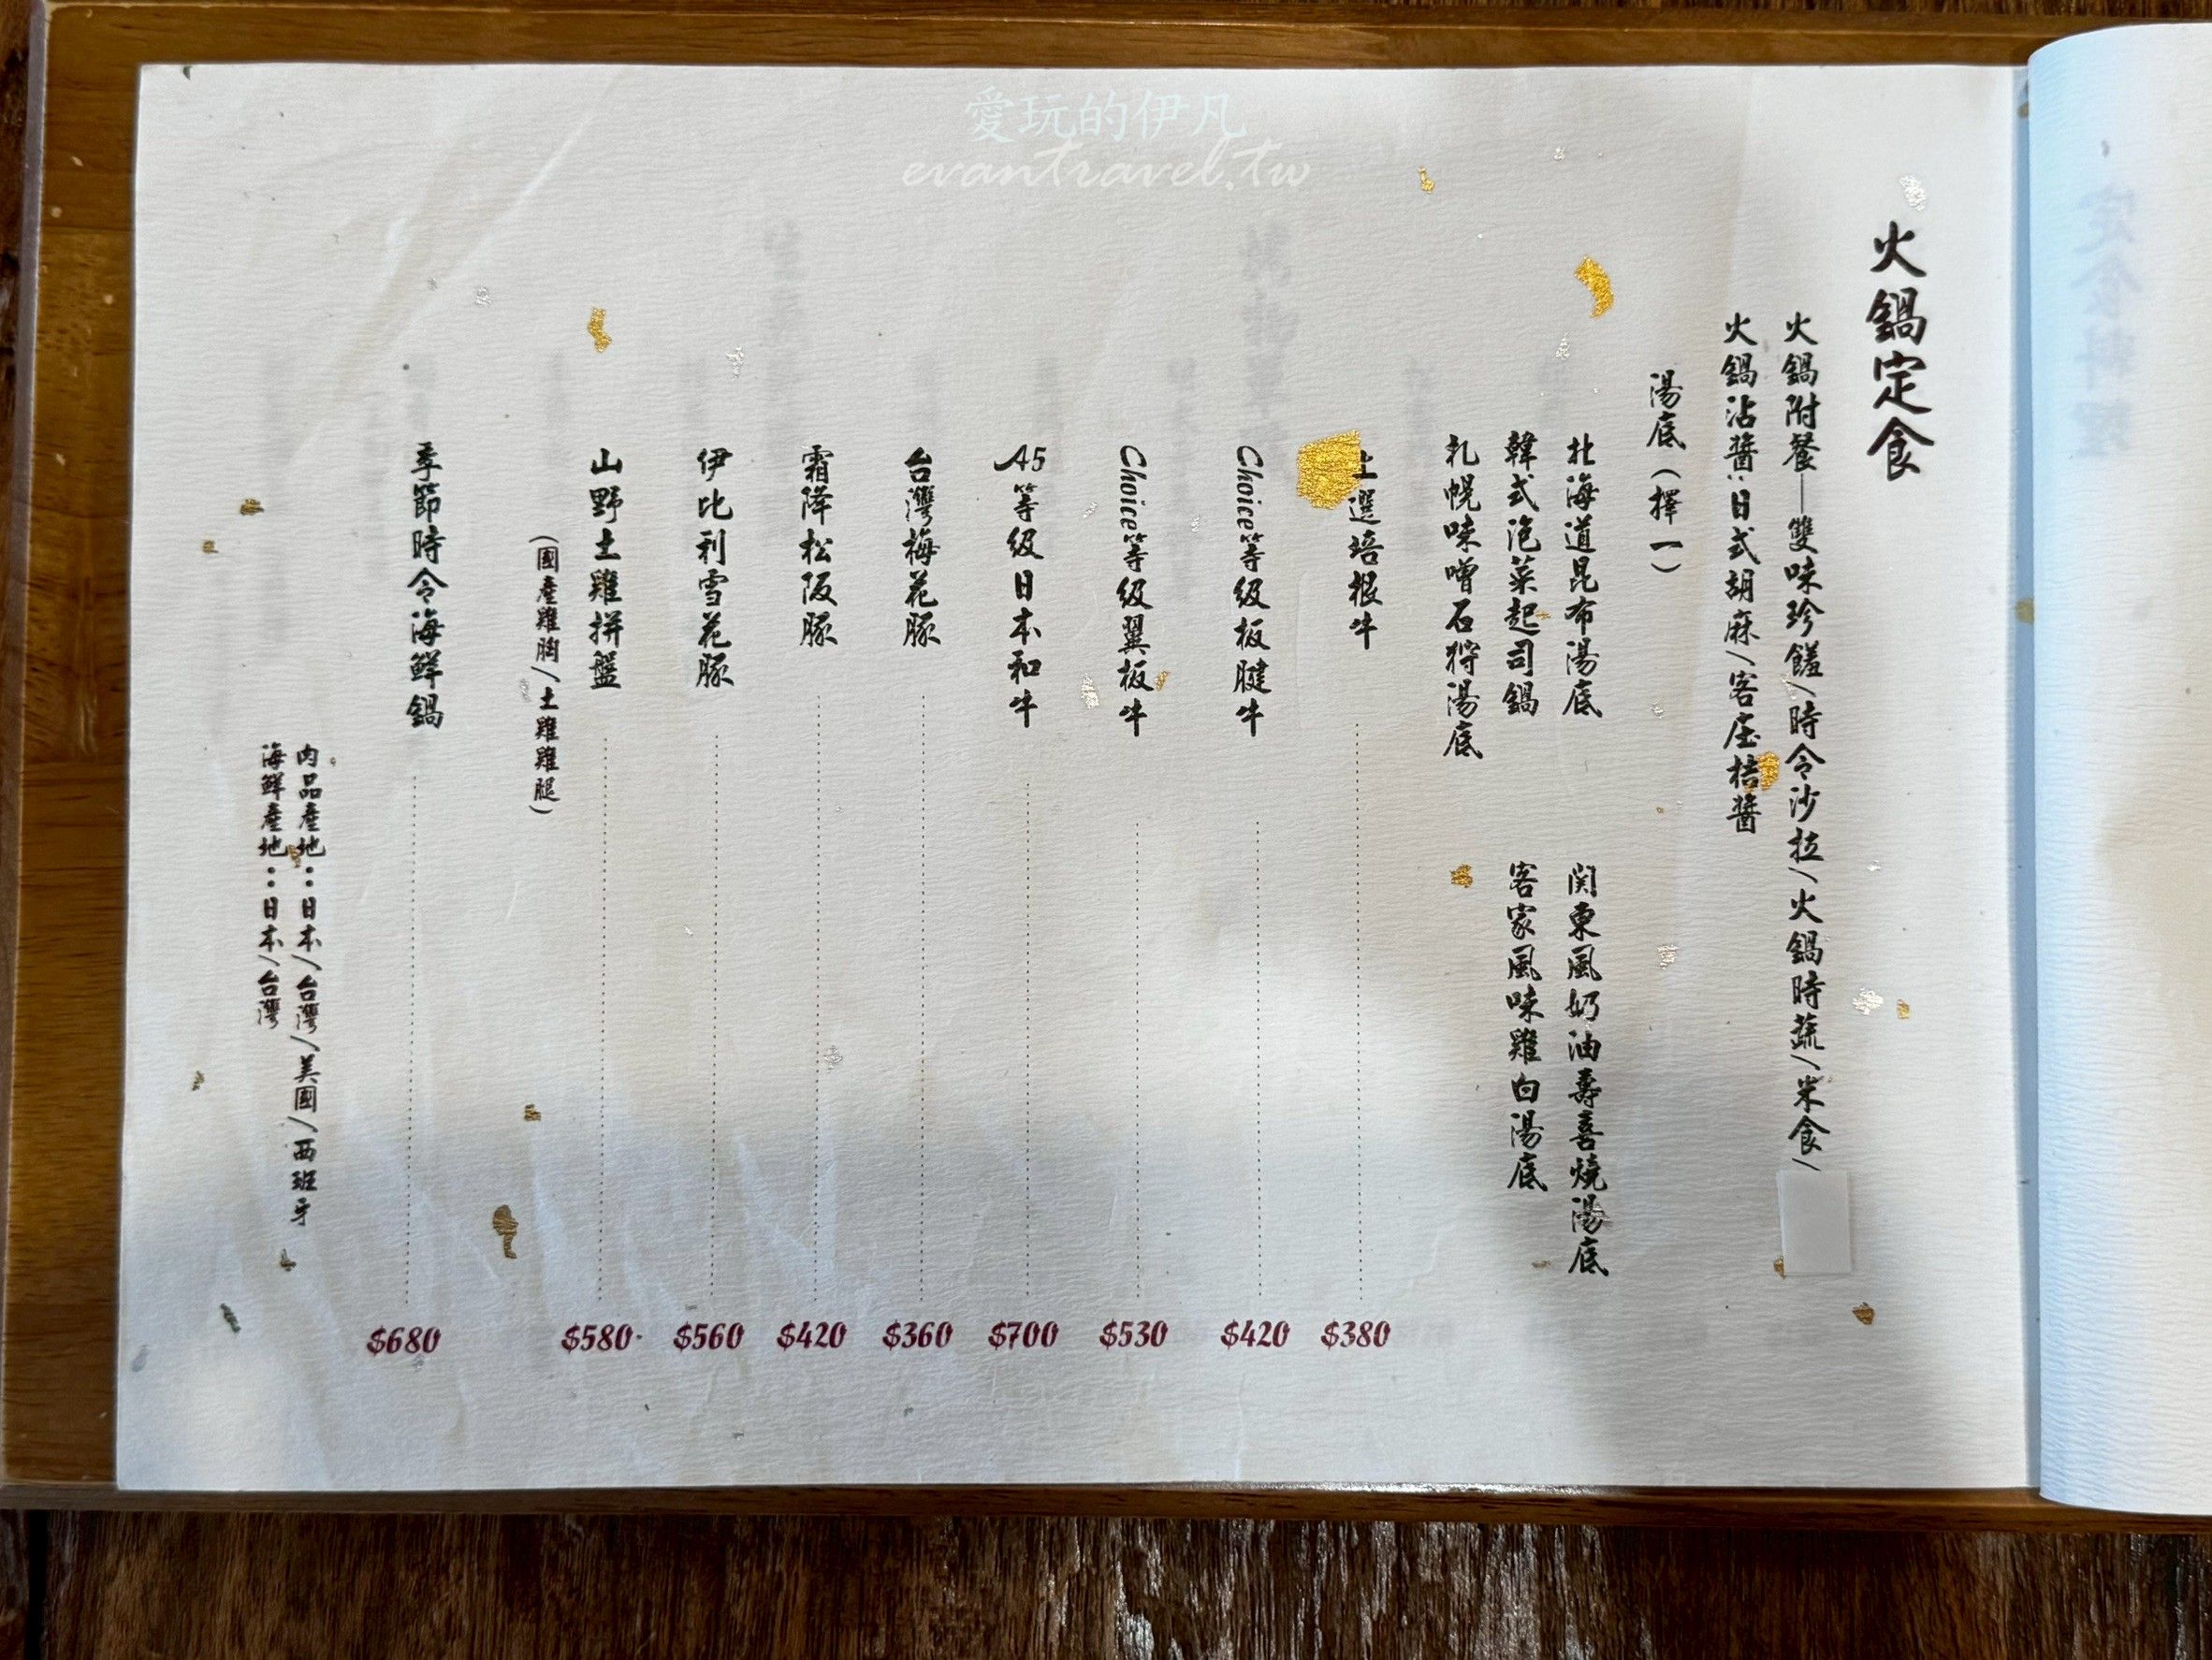 愛玩的伊凡
evantravel.tw
火鍋定食
火鍋附餐—雙味珍饈/時令沙拉/火鍋時蔬/米食/
火鍋沾醬:日式胡麻/客庄桔醬
湯底(擇一)
北海道昆布湯底
関東風奶油壽喜燒湯底
韓式泡菜起司鍋
客家風味雞白湯底
札幌味噌石狩湯底
上選培根牛 $380
Choice等級板腱牛 $420
Choice等級翼板牛 $530
A5等級日本和牛 $700
台灣梅花豚 $360
霜降松阪豚 $420
伊比利雪花豚 $560
山野土雞拼盤 $580
(國產雞胸/土雞雞腿)
季節時令海鮮鍋 $680
肉品產地:日本/台灣/美國/西班牙
海鮮產地:日本/台灣